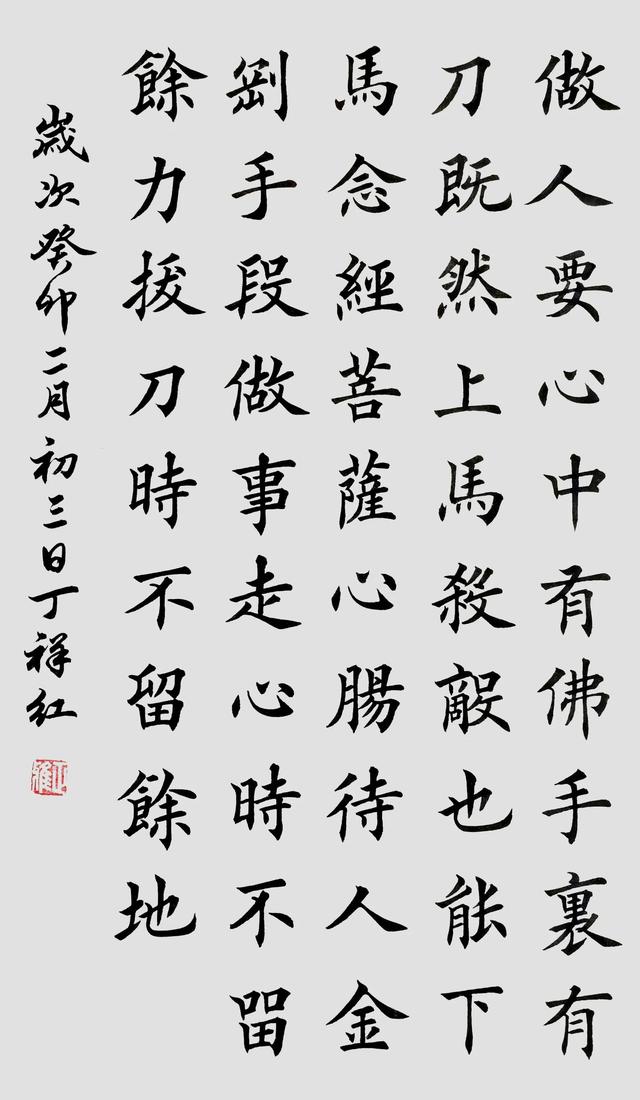 做人要心中有佛手裏有
刀既然上馬殺敵也能下
馬念經菩薩心腸待人金
剛手段做事走心時不留
餘力拔刀時不留餘地
歲次癸卯二月初三日丁祥紅